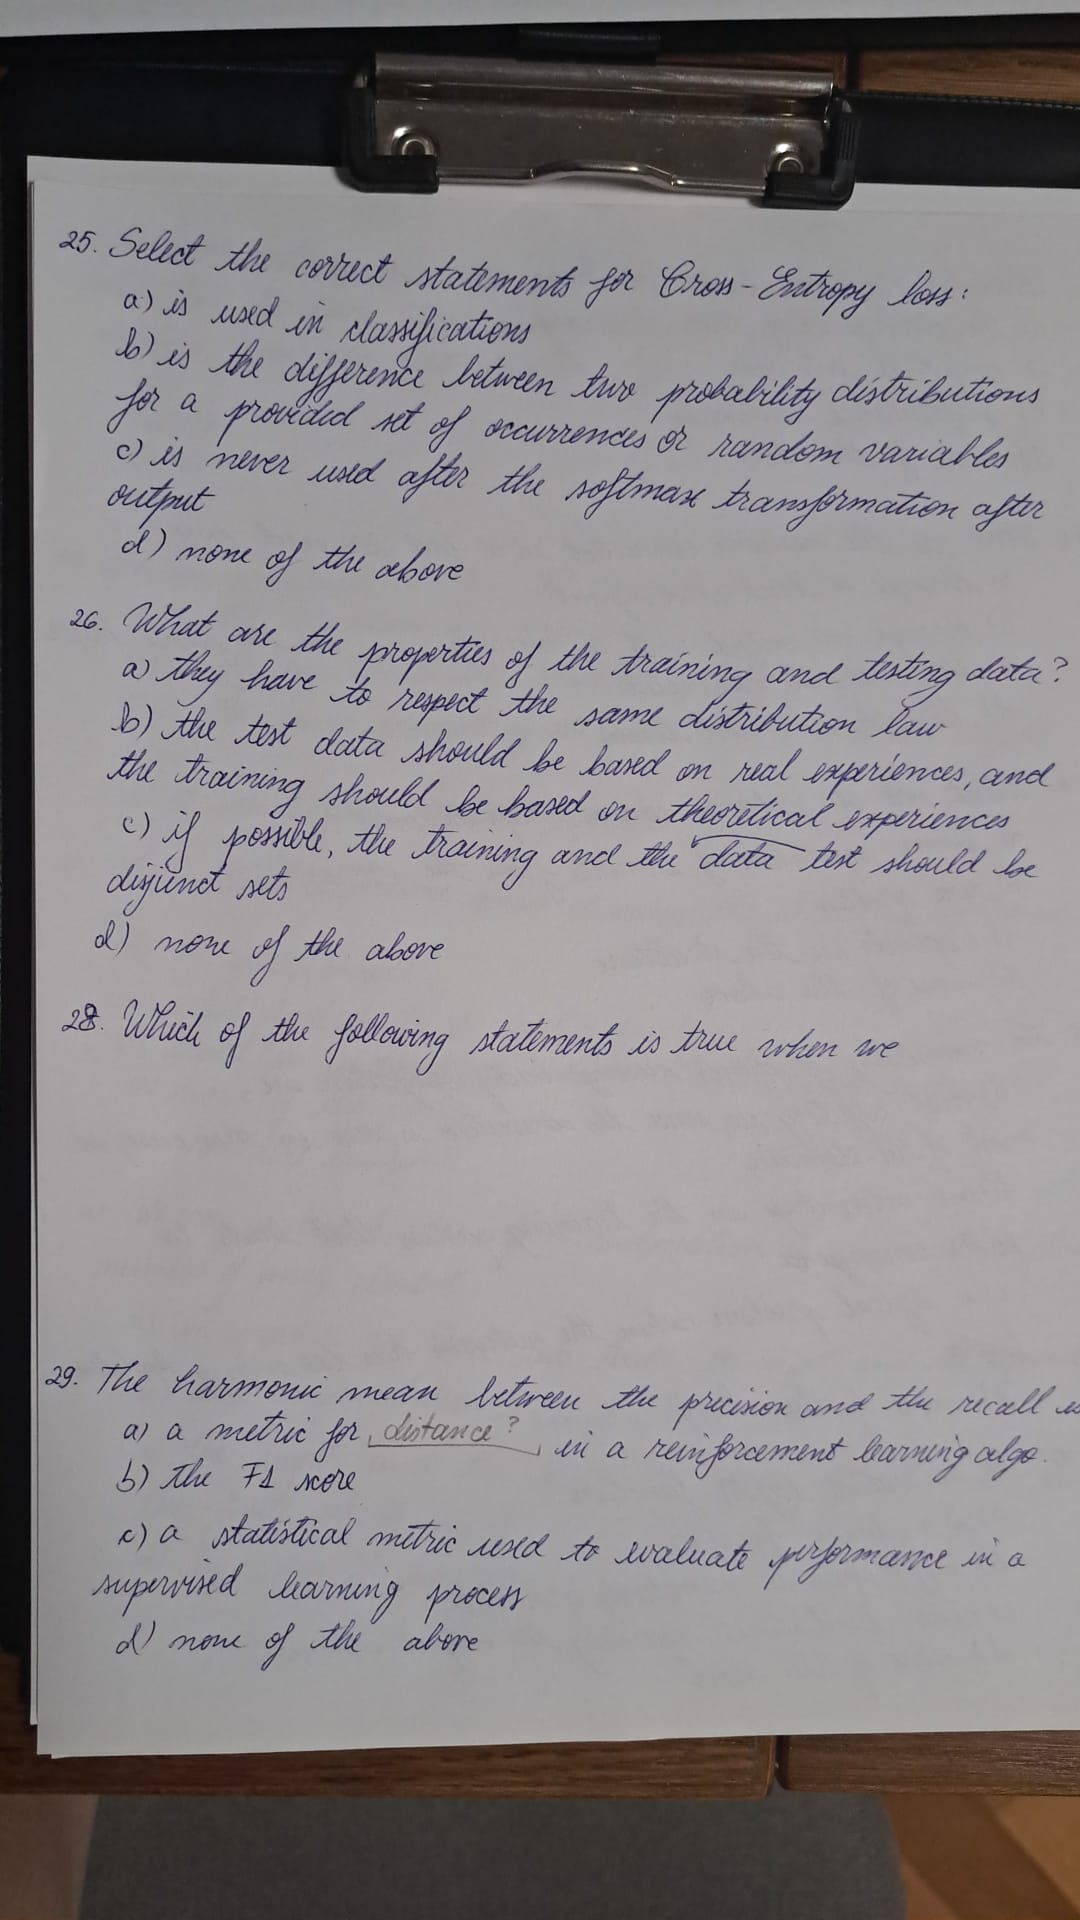 25. Select the correct statements for Cross-Entropy loss:
a) is used in classifications
b) is the difference between two probability distributions
for a provided set of occurrences or random variables
c) is never used after the softmax transformation after
output
d) none of the above
26. What are the properties of the training and testing data?
a) they have to respect the same distribution law
b) the test data should be based on real experiences, and
the training should be based on theoretical experiences
c) if possible, the training and the data test should be
disjunct sets
d) none of the above
28. Which of the following statements is true when we
29. The harmonic mean between the precision and the recall is
a) a metric for distance? in a reinforcement learning algo.
b) the F1 score
c) a statistical metric used to evaluate performance in a
supervised learning process
d) none of the above